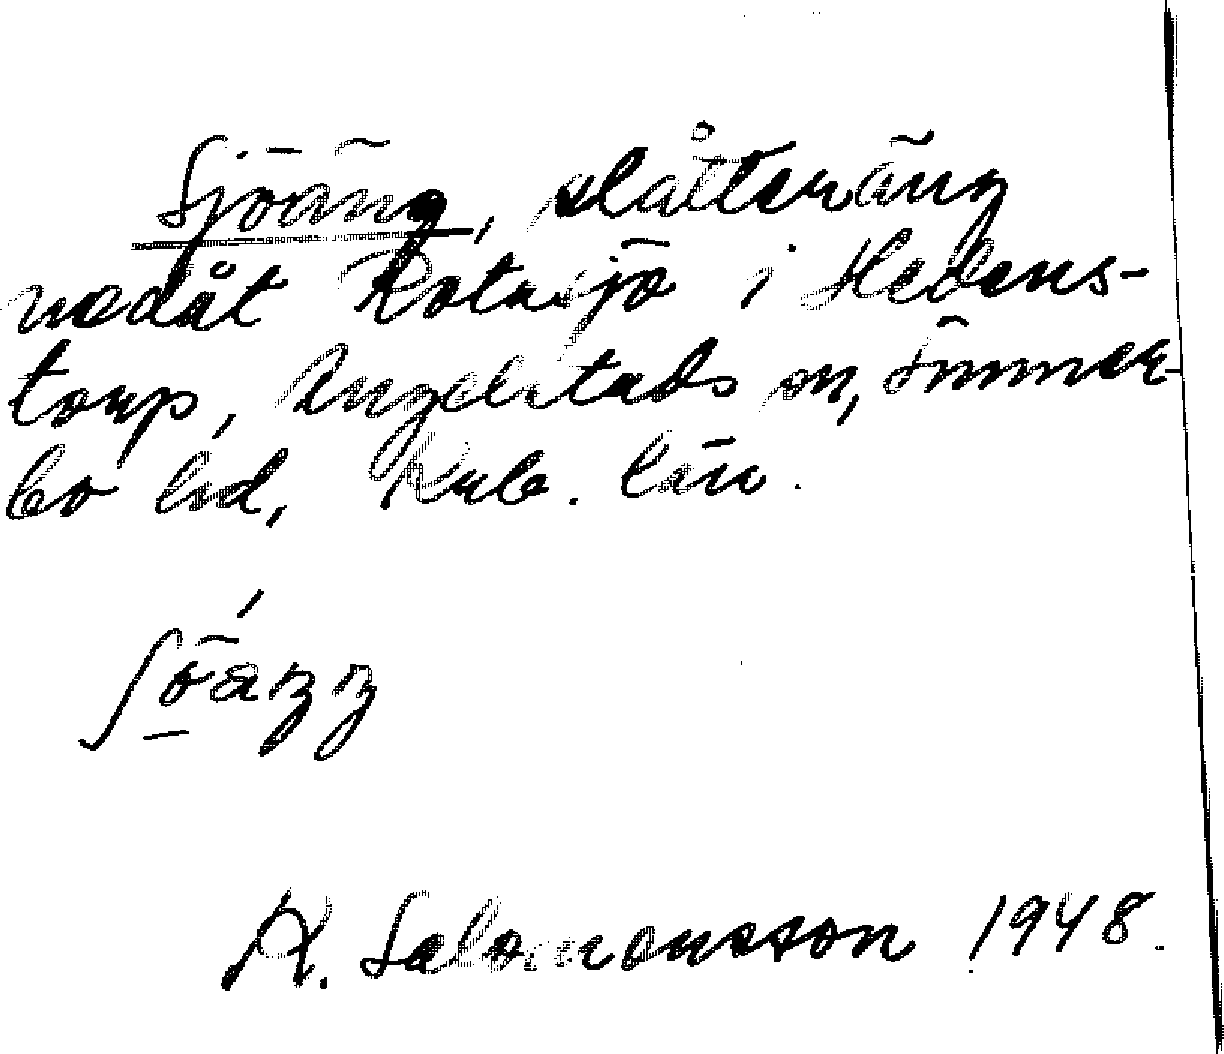 Sjöäng, slåtteräng
nedåt Rotasjö i Hedens-
torp, Angelstads sn, Sunner-
bo hd, Krb. län.
K. Salomonsson 1948.